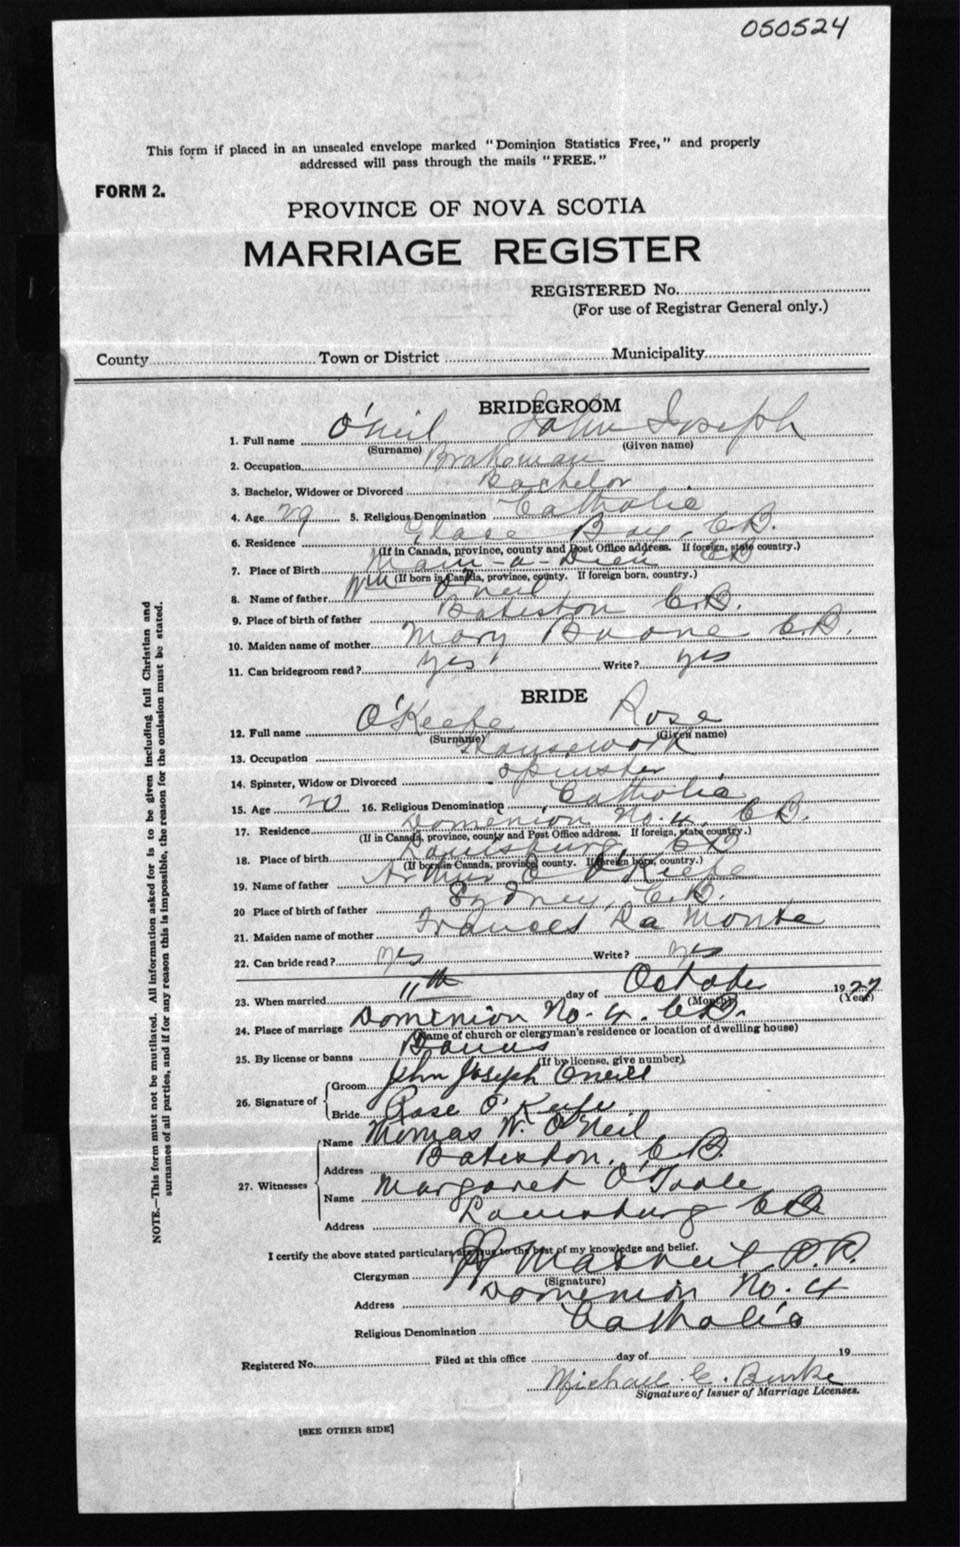 050524
This form if placed in an unsealed envelope marked "Dominion Statistics Free," and properly
addressed will pass through the mails "FREE."
FORM 2.
PROVINCE OF NOVA SCOTIA
MARRIAGE REGISTER
REGISTERED No.
(For use of Registrar General only.)
County Town or District Municipality
BRIDEGROOM
1. Full name O'Neil John Joseph
(Surname) (Given name)
2. Occupation Brakeman
3. Bachelor, Widower or Divorced Bachelor
4. Age 29 5. Religious Denomination Catholic
6. Residence Glace Bay, C.B.
(If in Canada, province, county and Post Office address. If foreign, state country.)
7. Place of Birth Main-a-Dieu CB
(If born in Canada, province, county. If foreign born, country.)
8. Name of father Wm O'Neil
9. Place of birth of father Bateston C.B.
10. Maiden name of mother Mary Boone C.B.
11. Can bridegroom read? yes Write? yes
BRIDE
12. Full name O'Keefe Rose
(Surname) (Given name)
13. Occupation Housework
14. Spinster, Widow or Divorced Spinster
15. Age 20 16. Religious Denomination Catholic
17. Residence Dominion No. 4, C.B.
(If in Canada, province, county and Post Office address. If foreign, state country.)
18. Place of birth Louisburg, CB
(If born in Canada, province, county. If foreign born, country.)
19. Name of father Arthur O'Keefe
20 Place of birth of father Sydney, C.B.
21. Maiden name of mother Frances La Monte
22. Can bride read? yes Write? yes
23. When married 11th day of October 1927
(Month) (Year)
24. Place of marriage Dominion No. 4. C.B.
(Name of church or clergyman's residence or location of dwelling house)
25. By license or banns Banns
(If by license, give number)
26. Signature of
Groom John Joseph Oneill
Bride Rose O'Keefe
27. Witnesses
Name Thomas W. O'Neil
Address Bateston, C.B.
Name Margaret O'Toole
Address Louisburg C B
I certify the above stated particulars are true to the best of my knowledge and belief.
Clergyman P.P.
(Signature)
Address Dominion No. 4
Religious Denomination Catholic
Registered No. Filed at this office day of 19
Michael C. Burke
Signature of Issuer of Marriage Licenses.
[SEE OTHER SIDE]
NOTE.—This form must not be mutilated. All information asked for is to be given including full Christian and
surnames of all parties, and if for any reason this is impossible, the reason for the omission must be stated.